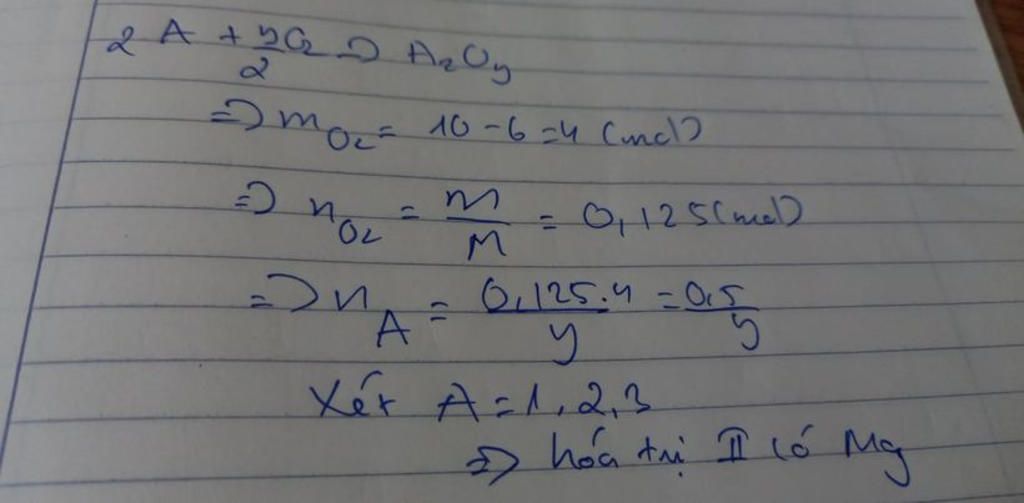 2 A + y/2 O2 => A2Oy
=> mO2 = 10 - 6 = 4 (mol)
=> nO2 = m/M = 0,125 (mol)
=> nA = 0,125.4/y = 0,5/y
Xét A = 1, 2, 3
=> hóa trị II có Mg